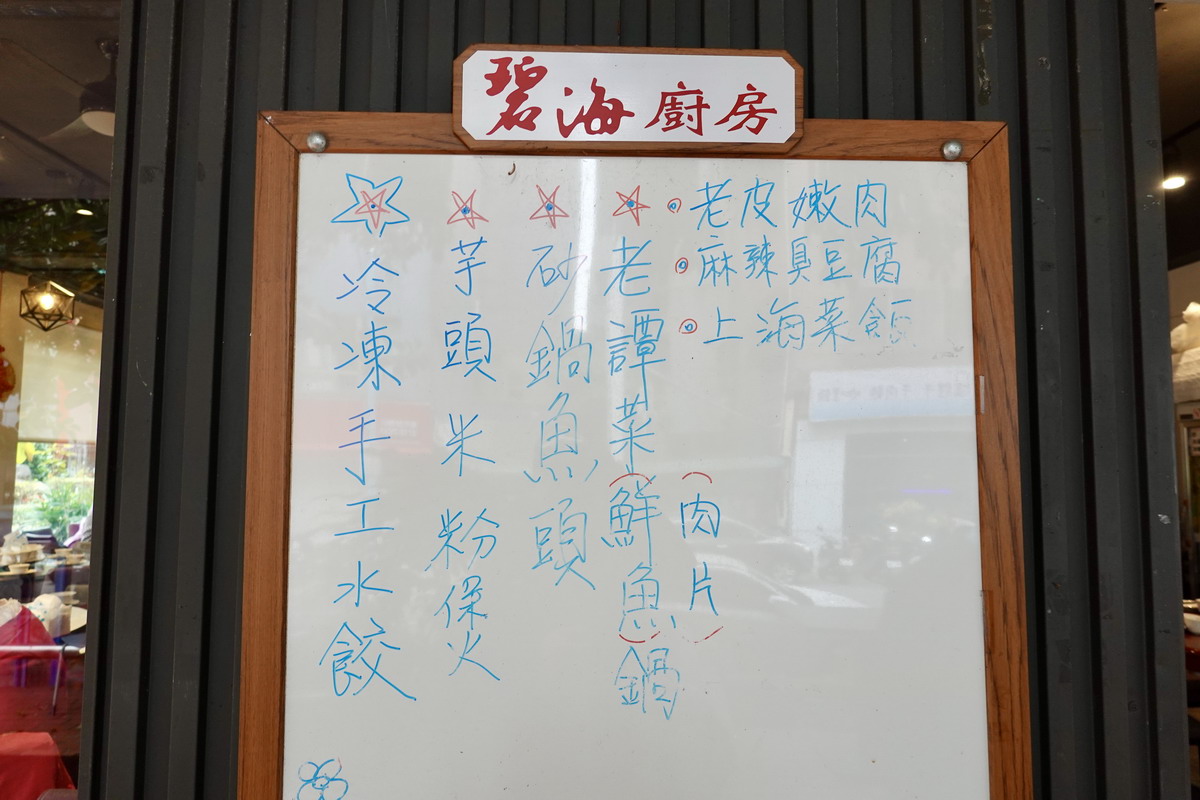 碧海廚房
老皮嫩肉
麻辣臭豆腐
上海菜飯
(肉片)
老譚菜(鮮魚)鍋
砂鍋魚頭
芋頭米粉煲
冷凍手工水餃